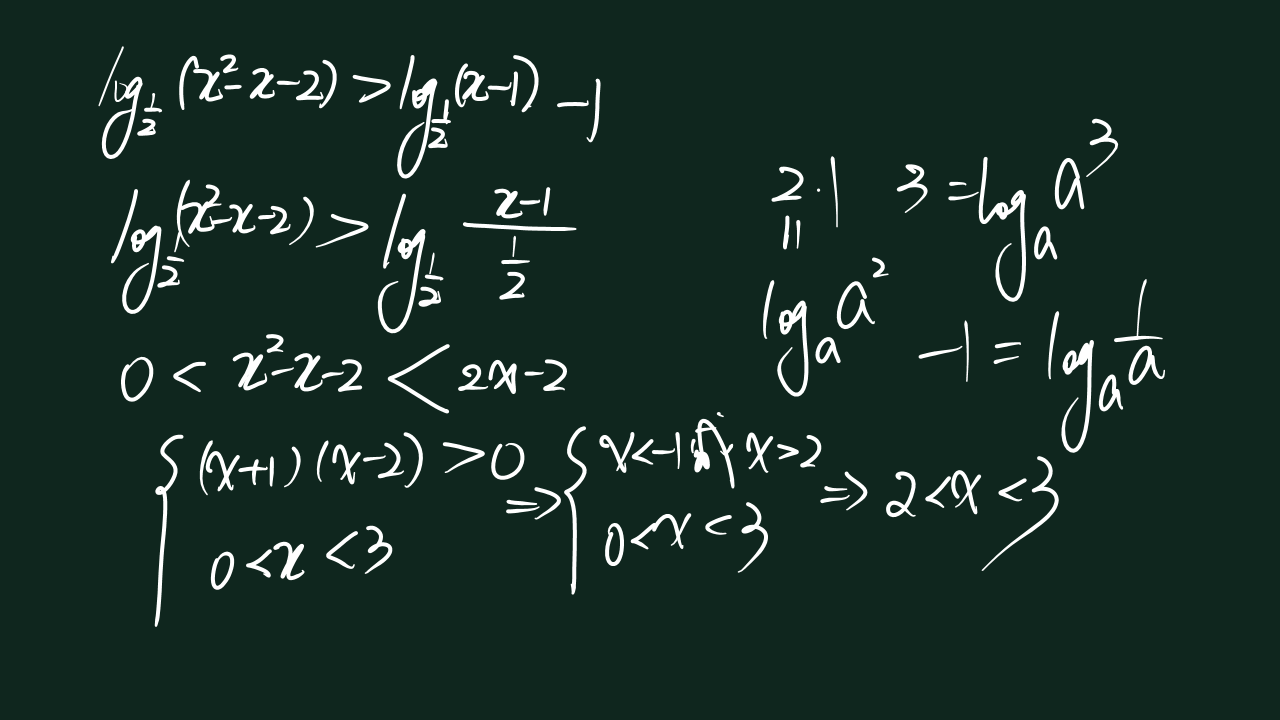 log_{1/2}(x²-x-2) > log_{1/2}(x-1) -1
log_{1/2}(x²-x-2) > log_{1/2} \frac{x-1}{\frac{1}{2}}
0 < x²-x-2 < 2x-2
{ (x+1)(x-2) > 0
0<x<3
⇒ { x<-1 或 x>2
0<x<3
⇒ 2<x<3
2·1
=
log_a a²
3 = log_a a³
-1 = log_a \frac{1}{a}